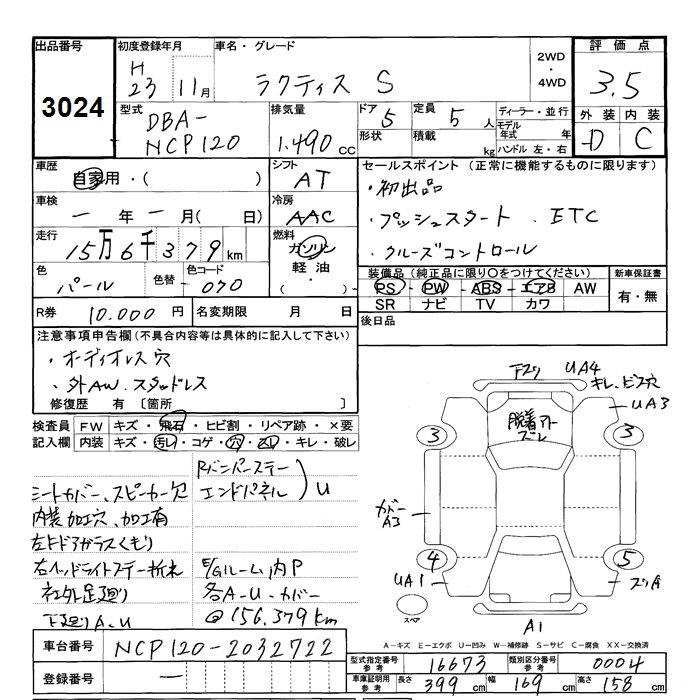 出品番号 初度登録年月 車名・グレード 評価点
3024
H23 11月 ラクティス S 2WD・4WD 3.5
型式 排気量 ドア 5 定員 5人 ディーラー・並行 外装 内装
DBA-NCP120 1.490cc 形状 積載 kg モデル年式 年 ハンドル 左・右 D C
車歴 シフト セールスポイント (正常に機能するものに限ります)
自家用・( ) AT ・初出品
車検 冷房
一年一月(日) AAC ・プッシュスタート. ETC
走行 燃料
15万6千379km ガソリン ・クルーズコントロール
色 色替 色コード 軽油 装備品(純正品に限り○をつけてください) 新車保証書
パール 070 ・( ) PS・PW・ABS・エアB AW 有・無
SR ナビ TV カワ
R券 10.000円 名変期限 月 日 後日品
注意事項申告欄(不具合内容等は具体的に記入して下さい)
・オーディオレス穴
・外AW.スタッドレス
修復歴 有 〔箇所 〕
検査員 FW キズ・飛石・ヒビ割・リペア跡・×要
記入欄 内装 キズ・汚レ・コゲ・穴・スレ・キレ・破レ
Rバンパーステー
エンドパネル )U
シートカバー、スピーカー欠
内装加工穴、加工有
左上ドアガラスくもり
右ヘッドライトステー折れ E/Gルーム内P
社外足廻り 各A-U.カバー
下廻りA-U @156,379km
UA4
キレ.ビス穴
UA3
脱着アト
ズレ
3 3
カバー
A3
4 5
UA1 スリA
スペア
A1
A-キズ E-エクボ U-凹み W-補修跡 S-サビ C-腐食 XX-交換済
車台番号 NCP120-2032722
型式指定番号 参考 16673 類別区分番号 参考 0004
登録番号 一
車庫証明用 参考 長さ 399cm 幅 169cm 高さ 158cm